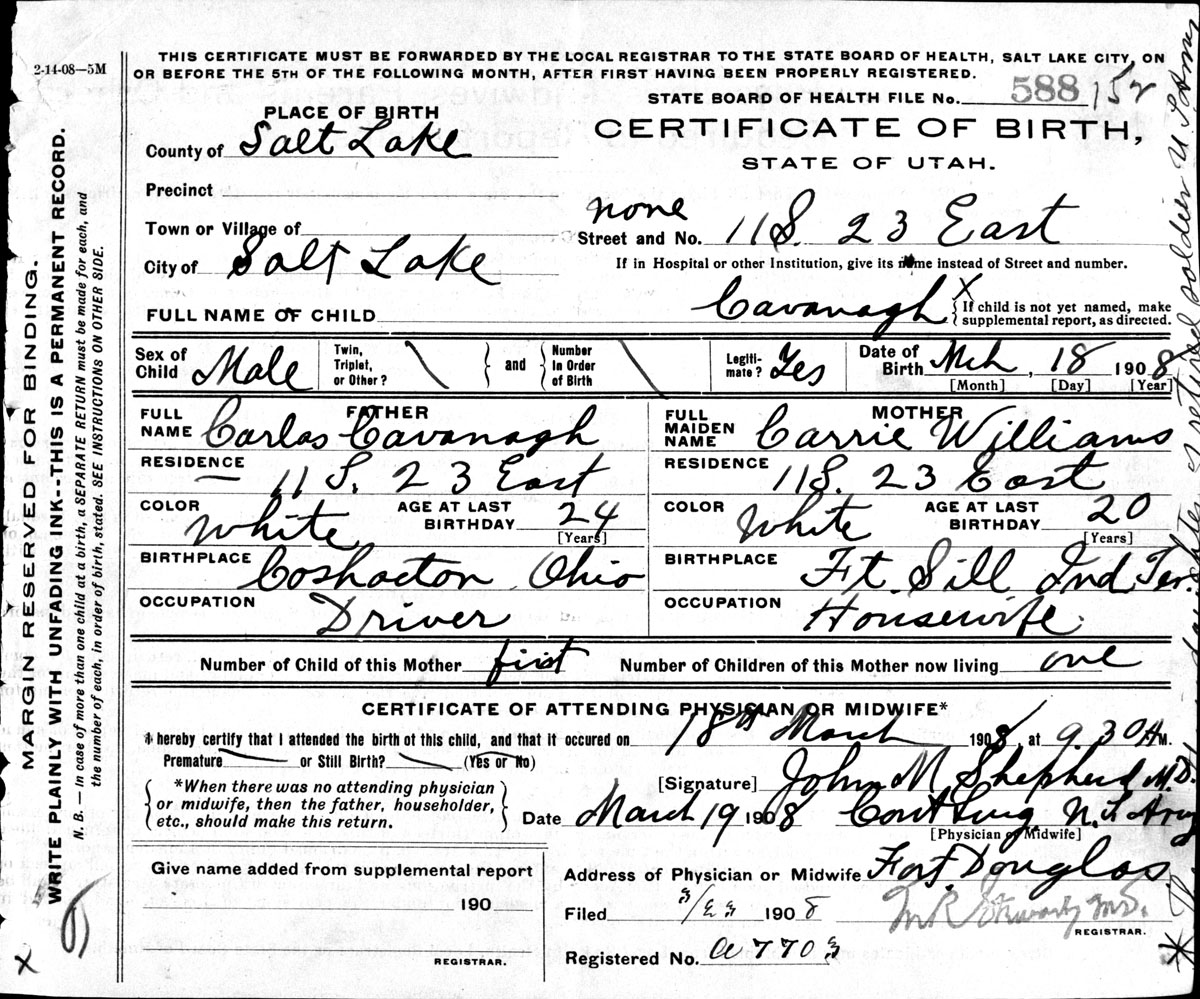 2-14-08—5M
THIS CERTIFICATE MUST BE FORWARDED BY THE LOCAL REGISTRAR TO THE STATE BOARD OF HEALTH, SALT LAKE CITY, ON
OR BEFORE THE 5TH OF THE FOLLOWING MONTH, AFTER FIRST HAVING BEEN PROPERLY REGISTERED.
STATE BOARD OF HEALTH FILE No. 588 152
PLACE OF BIRTH
CERTIFICATE OF BIRTH,
STATE OF UTAH.
County of Salt Lake
Precinct
Town or Village of
none
Street and No. 11 S. 23 East
City of Salt Lake
If in Hospital or other Institution, give its name instead of Street and number.
FULL NAME OF CHILD Cavanagh X
{If child is not yet named, make
supplemental report, as directed.
Sex of Child Male
Twin, Triplet, or Other? \ } and { Number In Order of Birth \
Legiti-mate? Yes
Date of Birth Mch, 18 1908
[Month] [Day] [Year]
FATHER
FULL NAME Carlos Cavanagh
RESIDENCE — 11 S. 23 East
COLOR White
AGE AT LAST BIRTHDAY 24
[Years]
BIRTHPLACE Coshocton Ohio
OCCUPATION Driver
MOTHER
FULL MAIDEN NAME Carrie Williams
RESIDENCE 11 S. 23 East
COLOR White
AGE AT LAST BIRTHDAY 20
[Years]
BIRTHPLACE Ft. Sill Ind Ter
OCCUPATION Housewife
Number of Child of this Mother first Number of Children of this Mother now living one
CERTIFICATE OF ATTENDING PHYSICIAN OR MIDWIFE*
I hereby certify that I attended the birth of this child, and that it occured on 18th March 1908, at 9.30 A M.
Premature — or Still Birth? — (Yes or No)
[Signature] John M Shepherd M.D.
{ *When there was no attending physician
or midwife, then the father, householder,
etc., should make this return. }
Date March 19 1908 Cont Surg U.S. Army
[Physician or Midwife]
Give name added from supplemental report
190
REGISTRAR.
Address of Physician or Midwife Fort Douglas
Filed 3/23 1908 M.D.
REGISTRAR.
Registered No. a7703
MARGIN RESERVED FOR BINDING.
WRITE PLAINLY WITH UNFADING INK--THIS IS A PERMANENT RECORD.
N. B. — In case of more than one child at a birth, a SEPARATE RETURN must be made for each, and
the number of each, in order of birth, stated. SEE INSTRUCTIONS ON OTHER SIDE.
X
* daughter of retired soldier U S Army